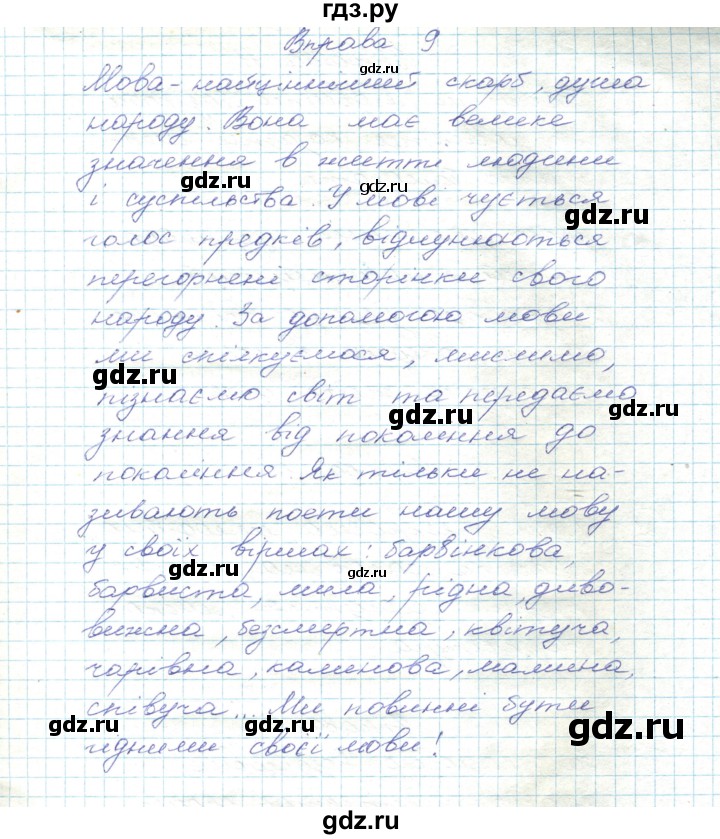 гдз.ру
Вправа 9
gdz.ru
Мова - найцінніший скарб, душа
gdz.ru
народу. Вона має велике
значення в житті людини
gdz.ru
gdz.ru
і суспільства. У мові чується
gdz.ru
голос предків, відлунюються
перегорнені сторінки свого
gdz.ru
gdz.ru
народу. За допомогою мови
ми спілкуємося, мислимо,
gdz.ru
пізнаємо світ та передаємо
gdz.ru
gdz.ru
знання від покоління до
покоління. Як тільки не на-
gdz.ru
gdz.ru
зивають поети нашу мову
у своїх віршах: барвінкова,
gdz.ru
gdz.ru
барвиста, мила, рідна, диво-
вижна, безсмертна, квітуча,
gdz.ru
чарівна, калинова, малинa,
gdz.ru
співуча... Ми повинні бути
gdz.ru
gdz.ru
gdz.ru
гідними своєї мови!
gdz.ru